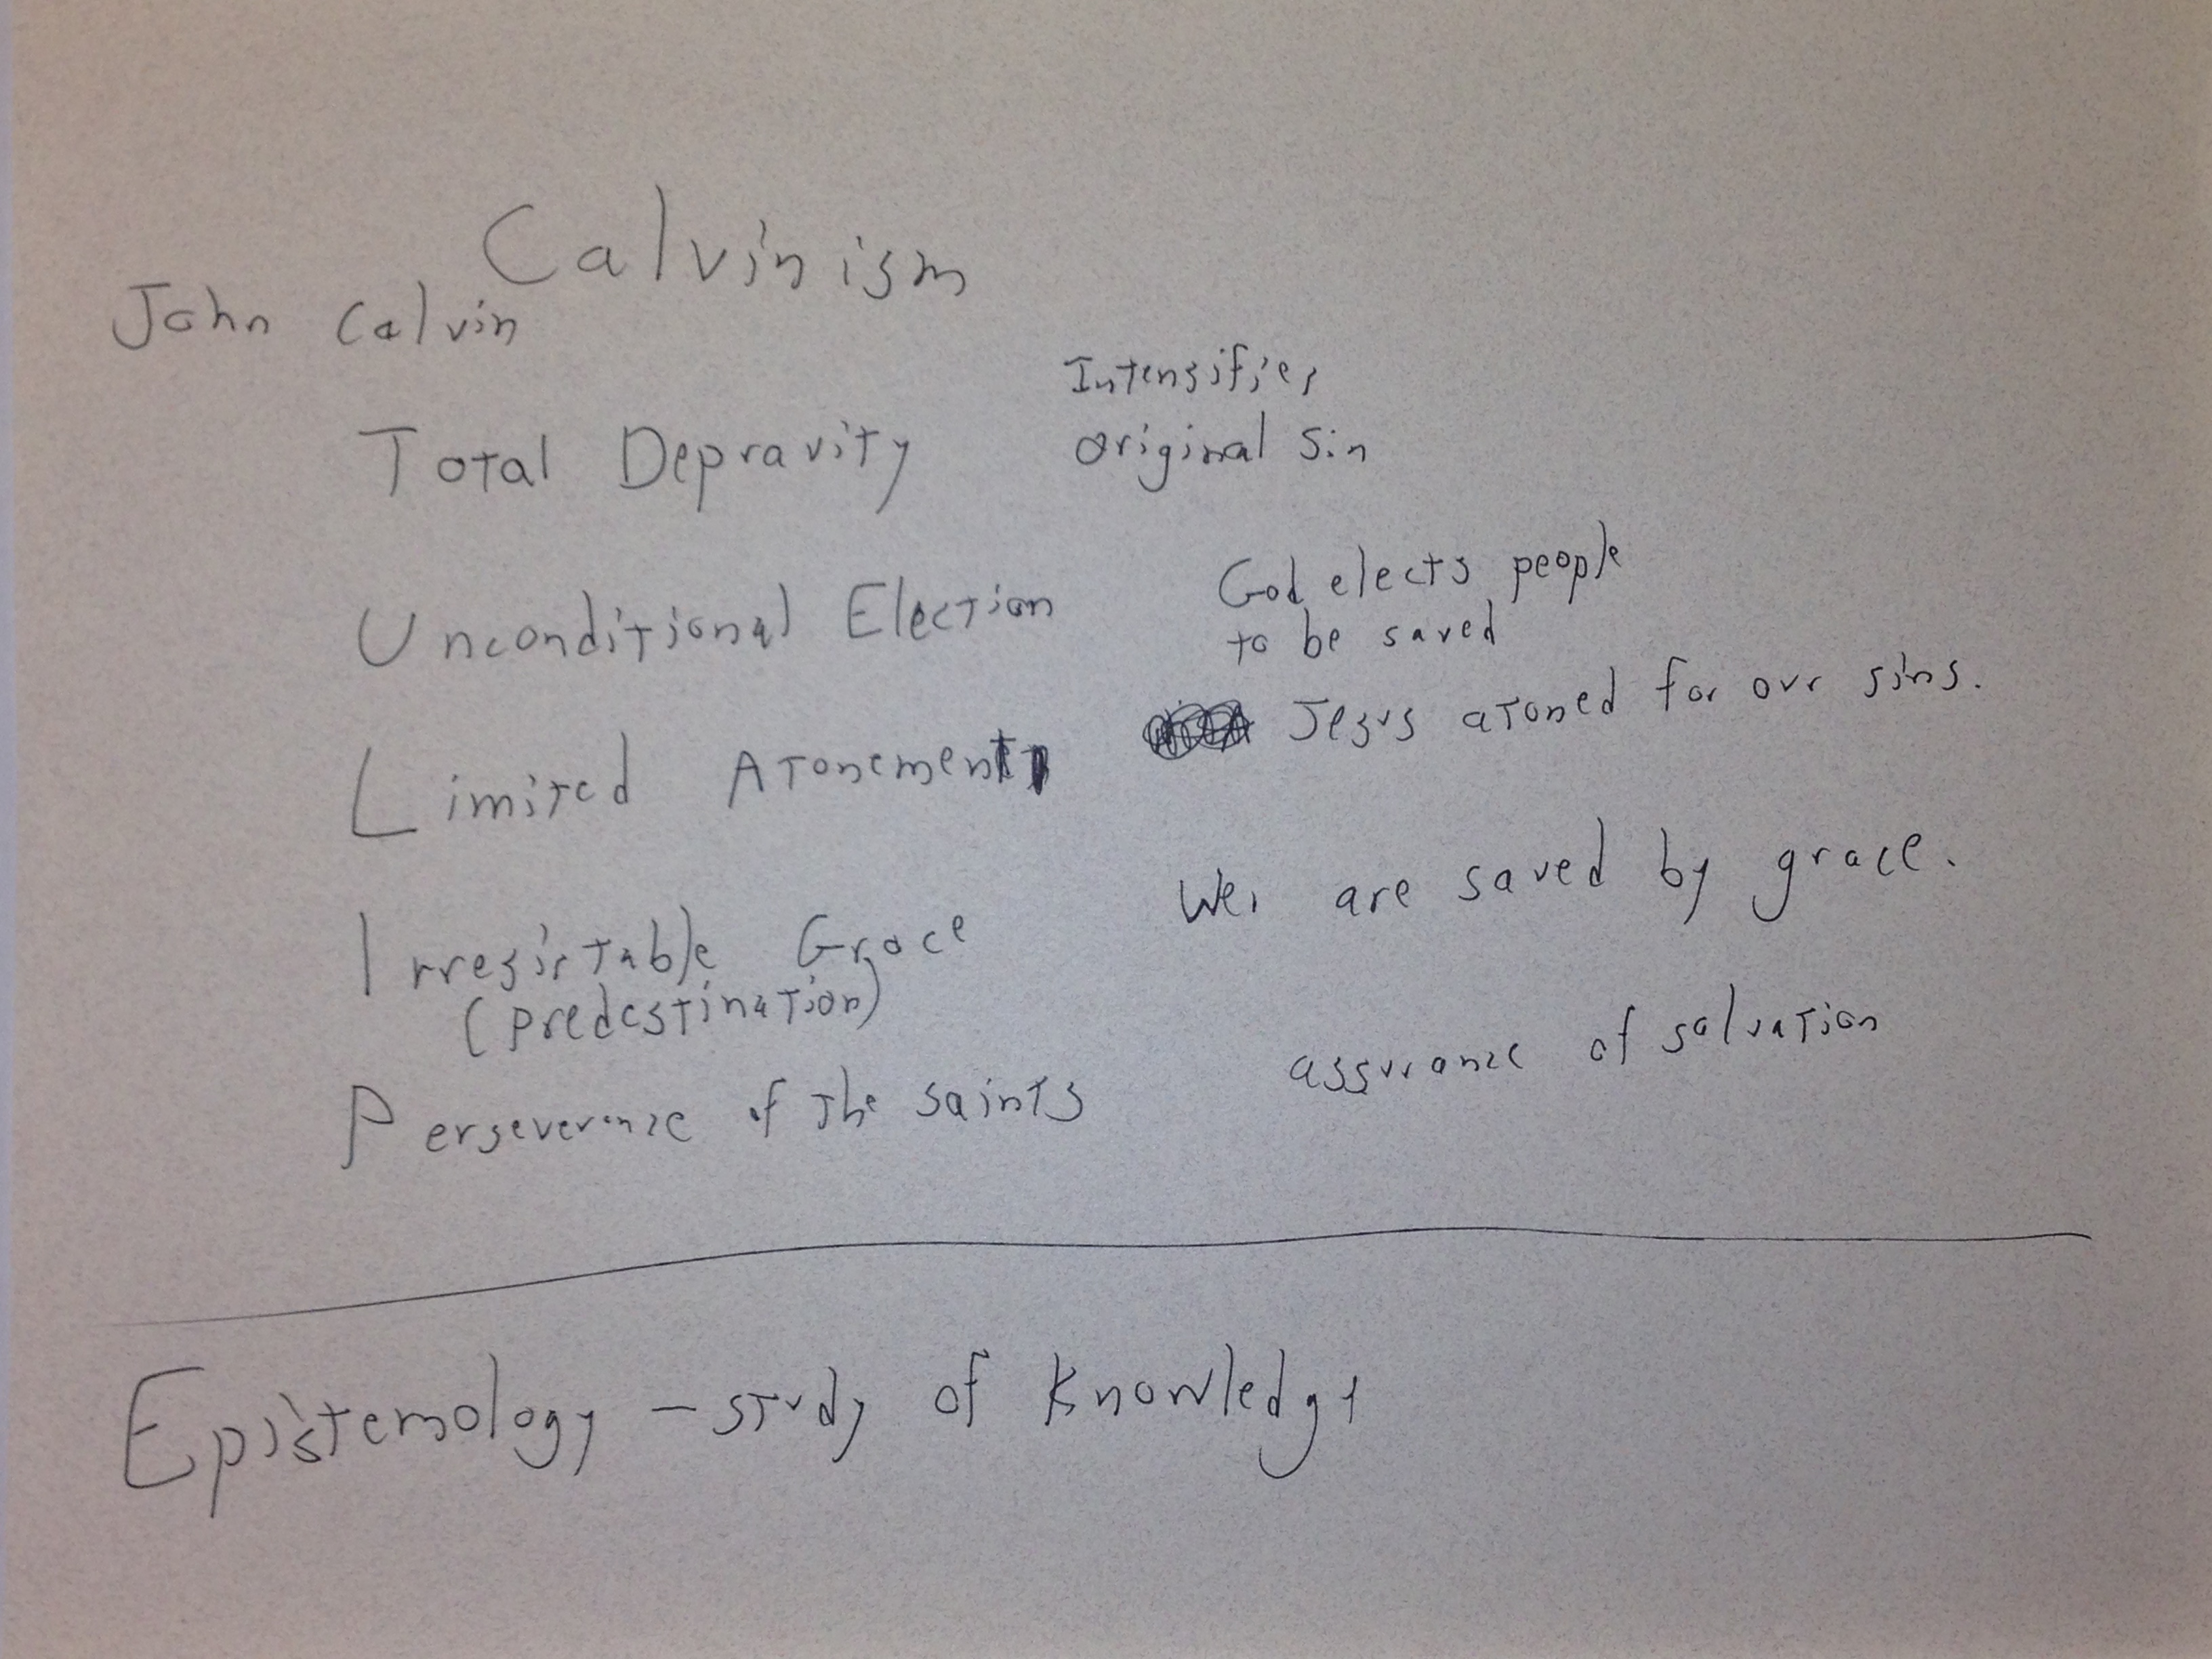 Calvinism
John Calvin
Intensifies
Total Depravity original Sin
Unconditional Election God elects people
to be saved
Limited Atonement Jesus atoned for our sins.
Irresistable Grace We, are saved by grace.
(predestination)
Perseverence of the saints assurance of salvation
Epistemology - study of knowledge